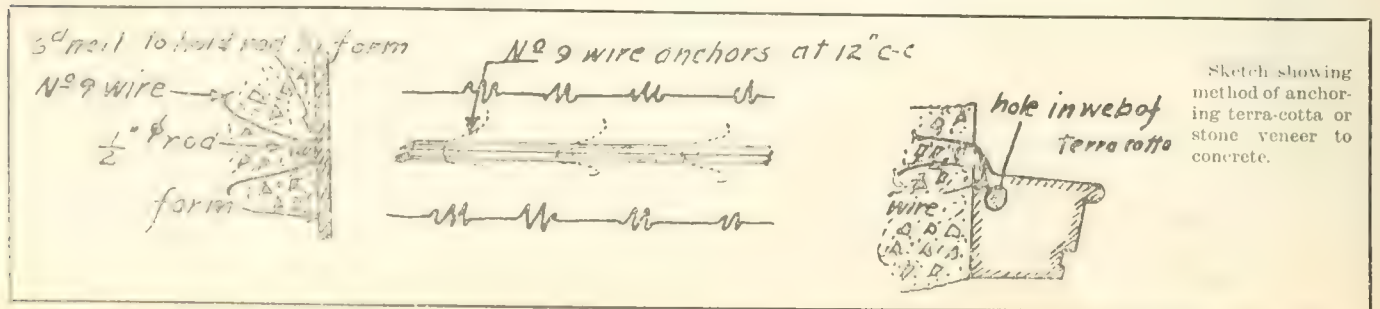 3d nail to hold rod in form
No 9 wire
1/2" φ rod
form
No 9 wire anchors at 12" c-c
hole in web of
Terra cotta
wire
Sketch showing
method of anchor-
ing terra-cotta or
stone veneer to
concrete.